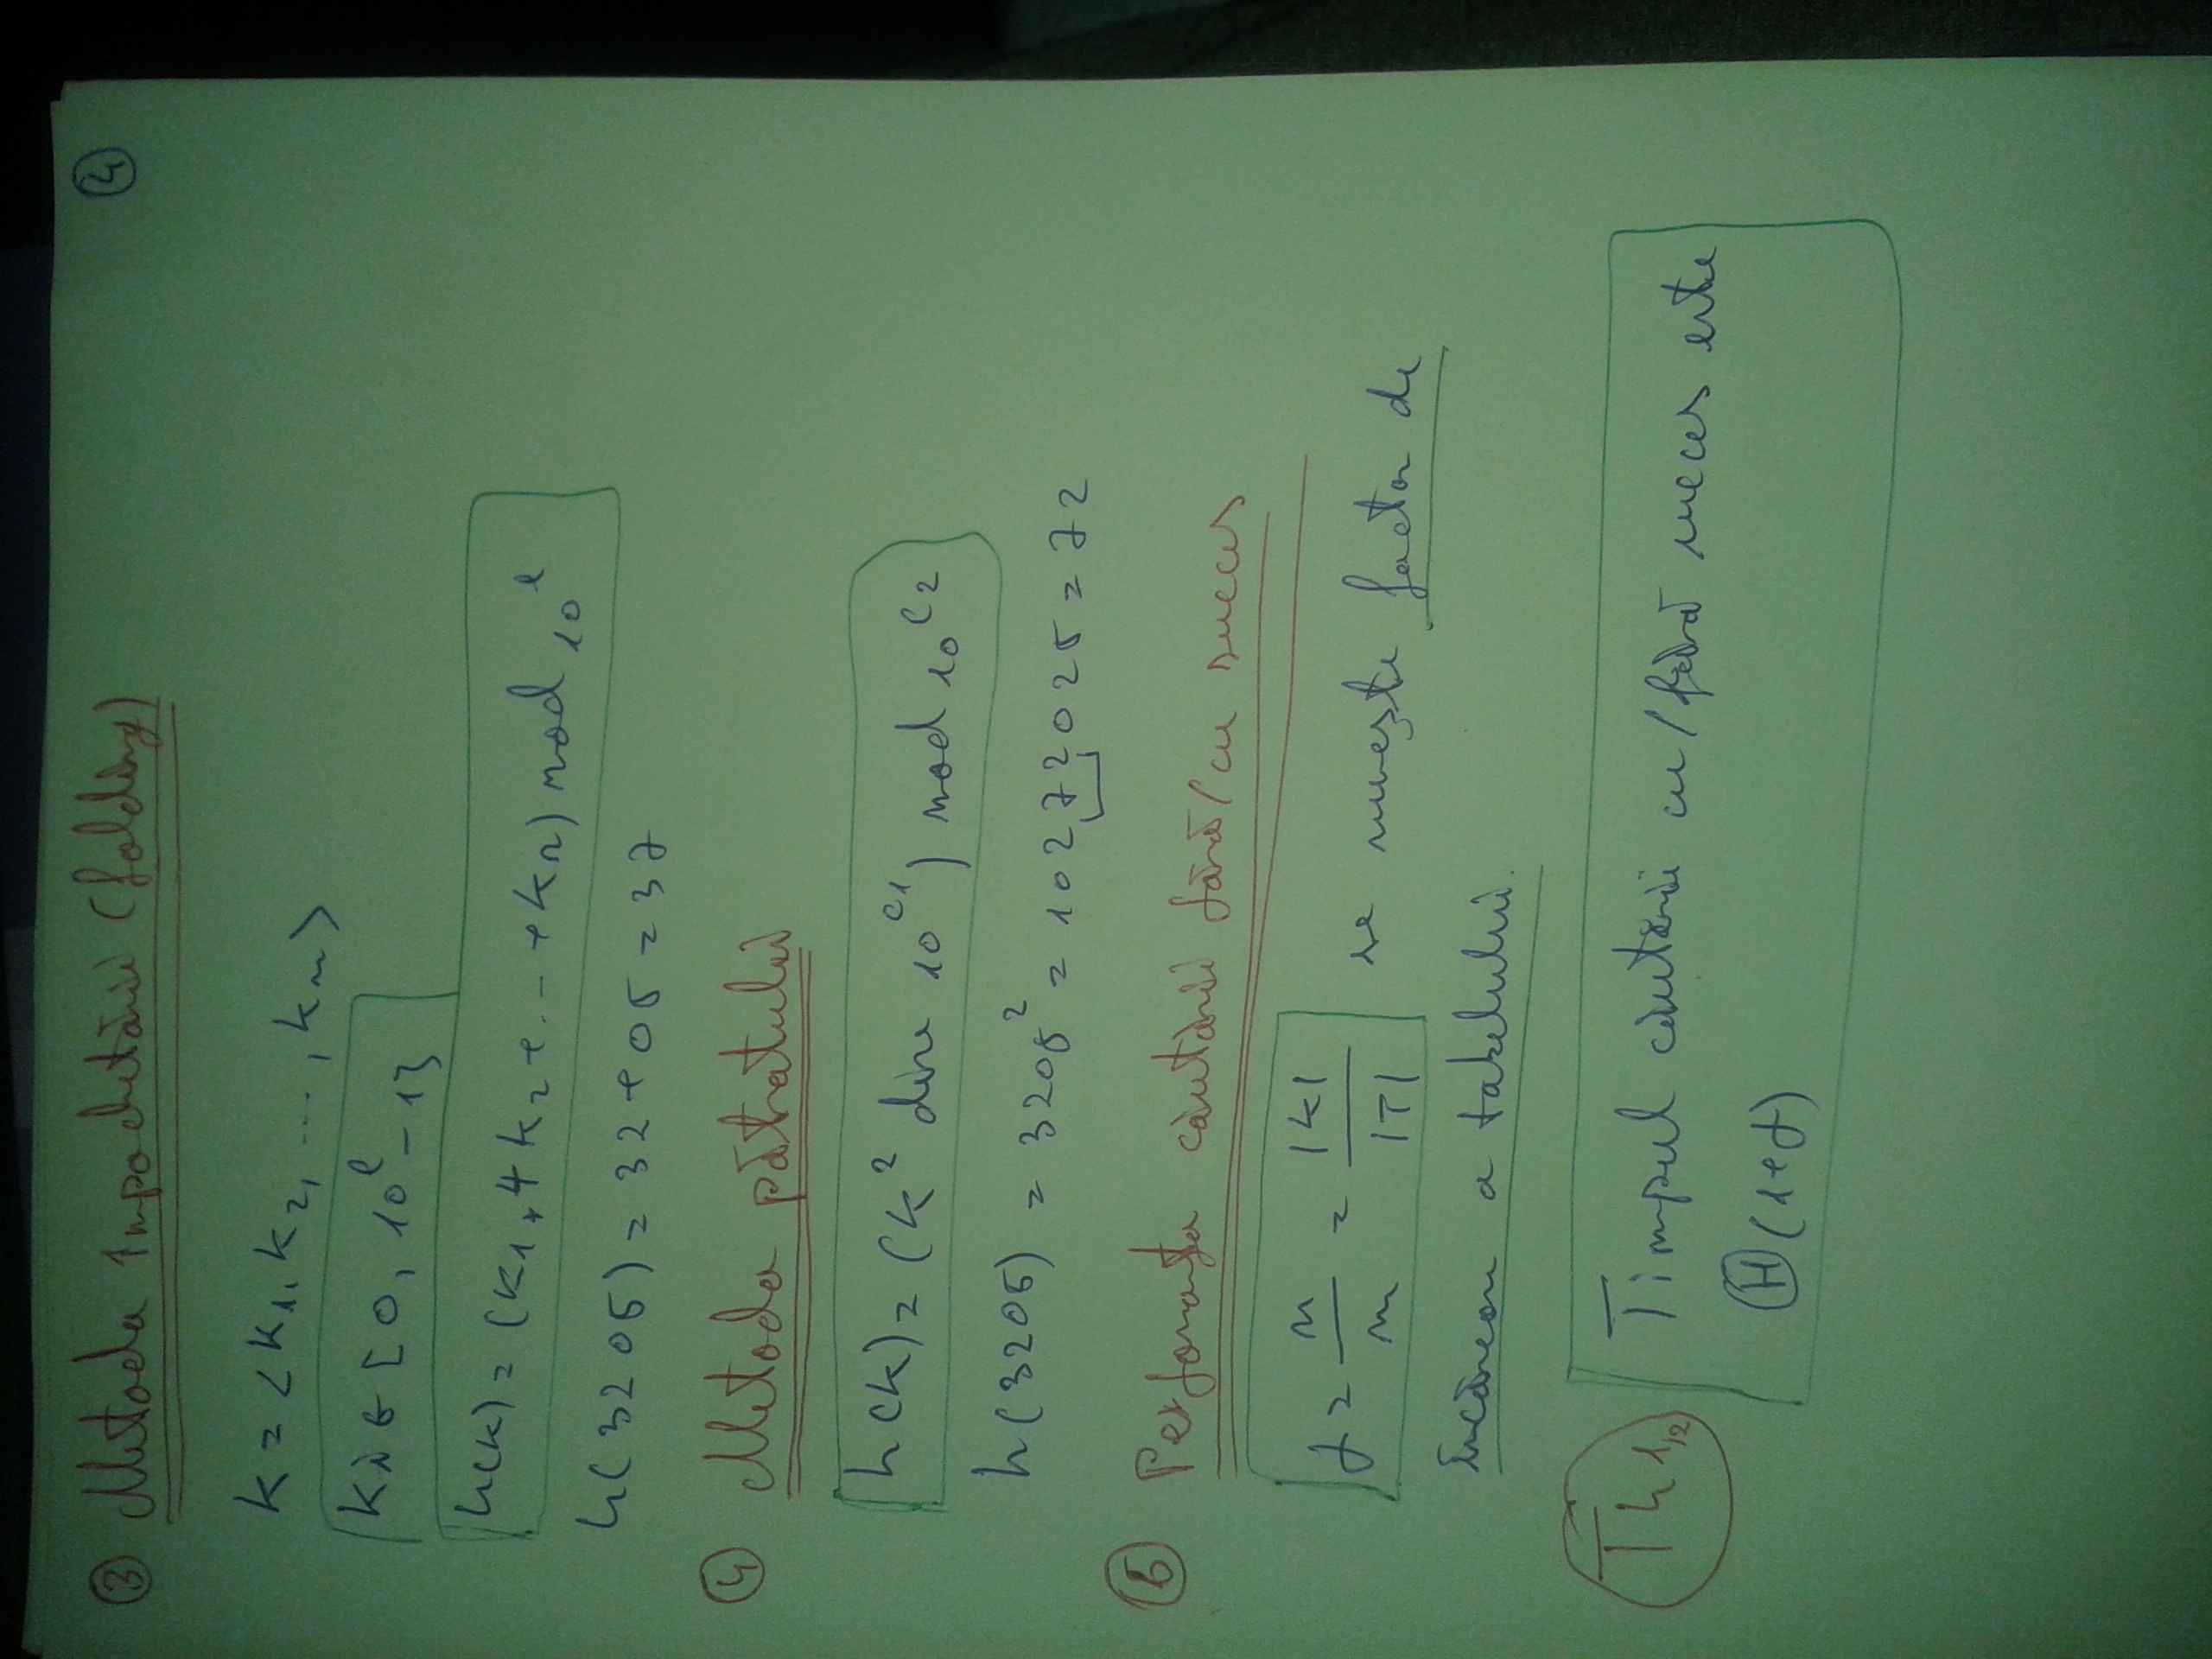 4
3 Metoda împachetării (folding)
k = <k1, k2, ..., kn>
ki ∈ [0, 10^l - 1]
h(k) = (k1 + k2 + ... + kn) mod 10^l
h(3205) = 32 + 05 = 37
4 Metoda pătratului
h(k) = (k² div 10^c1) mod 10^c2
h(3205) = 3205² = 10272025 = 72
5 Performanța căutării fără/cu succes
α = n/m = |K|/|T| se numește factor de
încărcare a tabelului.
Th 1,2 Timpul căutării cu/fără succes este
Θ(1+α)